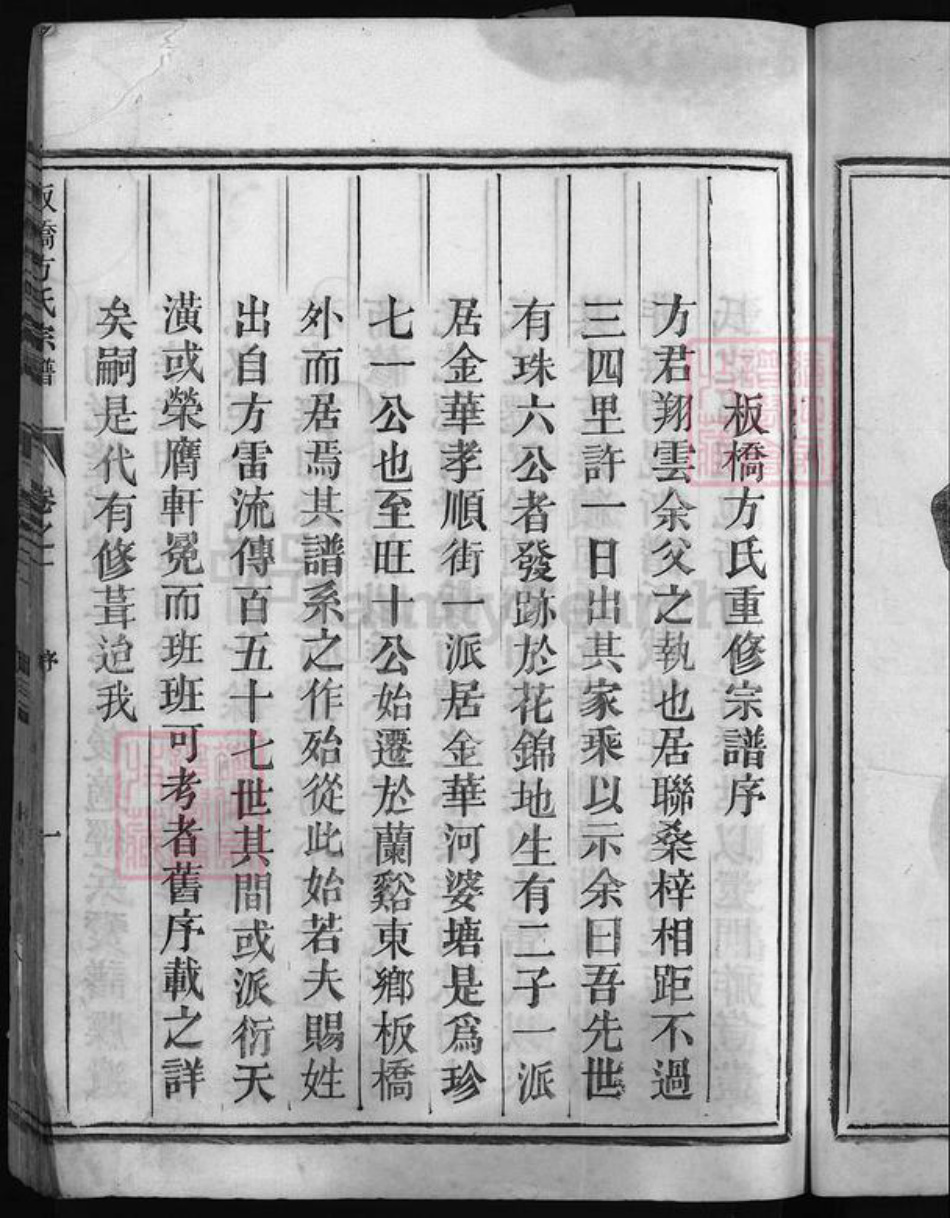 板橋方氏重修宗譜序
方君翔雲余父之執也居聯桑梓相距不過
三四里許一日出其家乘以示余曰吾先世
有珠六公者發跡於花錦地生有二子一派
居金華孝順街一派居金華河婆塘是爲珍
七一公也至旺十公始遷於蘭谿東鄉板橋
外而居焉其譜系之作殆從此始若夫賜姓
出自方雷流傳百五十七世其間或派衍天
潢或榮膺軒冕而班班可考者舊序載之詳
矣嗣是代有修葺迨我
板橋方氏宗譜
序
一